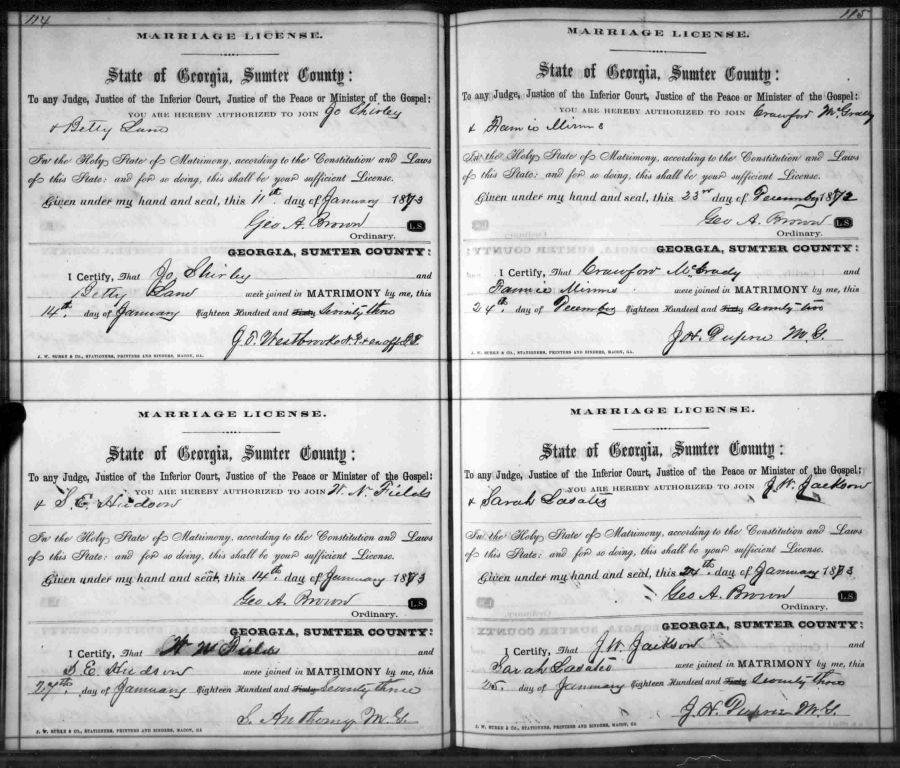 114
MARRIAGE LICENSE.
State of Georgia, Sumter County:
To any Judge, Justice of the Inferior Court, Justice of the Peace or Minister of the Gospel:
YOU ARE HEREBY AUTHORIZED TO JOIN Jo Shirley
& Betty Lane
In the Holy State of Matrimony, according to the Constitution and Laws
of this State: and for so doing, this shall be your sufficient License.
Given under my hand and seal, this 11th day of January 1873
Geo A. Brown L.S
Ordinary.
GEORGIA, SUMTER COUNTY:
I Certify, That Jo Shirley and
Betty Lane were joined in MATRIMONY by me, this
14th. day of January Eighteen Hundred and Sixty Seventy three
J. W. BURKE & CO., STATIONERS, PRINTERS AND BINDERS, MACON, GA.
MARRIAGE LICENSE.
State of Georgia, Sumter County:
To any Judge, Justice of the Inferior Court, Justice of the Peace or Minister of the Gospel:
YOU ARE HEREBY AUTHORIZED TO JOIN Fields
& S. E. Hudson
In the Holy State of Matrimony, according to the Constitution and Laws
of this State: and for so doing, this shall be your sufficient License.
Given under my hand and seal, this 14th. day of January 1873
Geo A. Brown L.S
Ordinary.
GEORGIA, SUMTER COUNTY:
I Certify, That Fields and
S. E. Hudson were joined in MATRIMONY by me, this
27th. day of January Eighteen Hundred and Sixty Seventy three
S. Anthony M.G.
J. W. BURKE & CO., STATIONERS, PRINTERS AND BINDERS, MACON, GA
115
MARRIAGE LICENSE.
State of Georgia, Sumter County:
To any Judge, Justice of the Inferior Court, Justice of the Peace or Minister of the Gospel:
YOU ARE HEREBY AUTHORIZED TO JOIN Crawford McGrady
& Fannie Mims
In the Holy State of Matrimony, according to the Constitution and Laws
of this State: and for so doing, this shall be your sufficient License.
Given under my hand and seal, this 23rd day of December 1872
Geo A. Brown L.S
Ordinary.
GEORGIA, SUMTER COUNTY:
I Certify, That Crawford McGrady and
Fannie Mims were joined in MATRIMONY by me, this
24th. day of December Eighteen Hundred and Sixty Seventy two
J. H. Dupree M.G.
J. W. BURKE & CO., STATIONERS, PRINTERS AND BINDERS, MACON, GA.
MARRIAGE LICENSE.
State of Georgia, Sumter County:
To any Judge, Justice of the Inferior Court, Justice of the Peace or Minister of the Gospel:
YOU ARE HEREBY AUTHORIZED TO JOIN J. W. Jackson
& Sarah
In the Holy State of Matrimony, according to the Constitution and Laws
of this State: and for so doing, this shall be your sufficient License.
Given under my hand and seal, this 24th. day of January 1873
Geo A. Brown L.S
Ordinary.
GEORGIA, SUMTER COUNTY:
I Certify, That J. W. Jackson and
Sarah were joined in MATRIMONY by me, this
25. day of January Eighteen Hundred and Sixty Seventy three
J. H. Dupree M.G.
J. W. BURKE & CO., STATIONERS, PRINTERS AND BINDERS, MACON, GA.